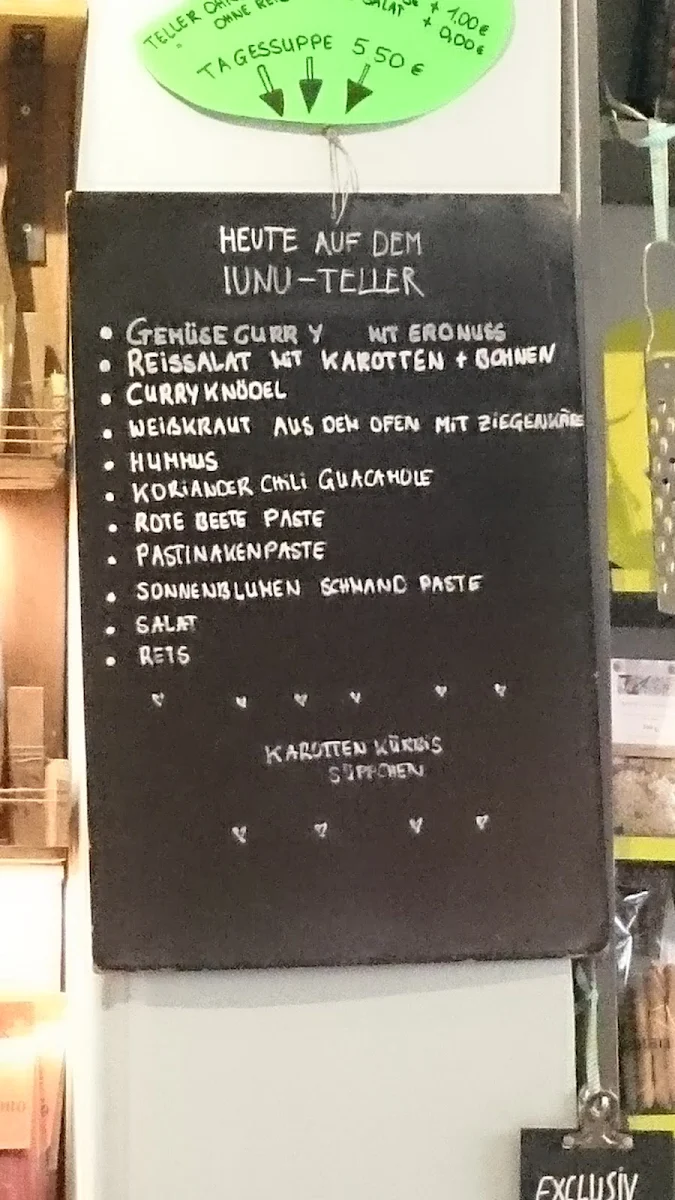 TELLER
OHNE REIS
SALAT
+ 1,00€
+ 0,00€
TAGESSUPPE 5,50€
HEUTE AUF DEM
IUNU-TELLER
• GEMÜSECURRY MIT ERDNUSS
• REISSALAT MIT KAROTTEN + BOHNEN
• CURRYKNÖDEL
• WEIßKRAUT AUS DEM OFEN MIT ZIEGENKÄSE
• HUMMUS
• KORIANDER CHILI GUACAMOLE
• ROTE BEETE PASTE
• PASTINAKENPASTE
• SONNENBLUMEN SCHMAND PASTE
• SALAT
• REIS
KAROTTEN KÜRBIS
SÜPPCHEN
EXCLUSIV